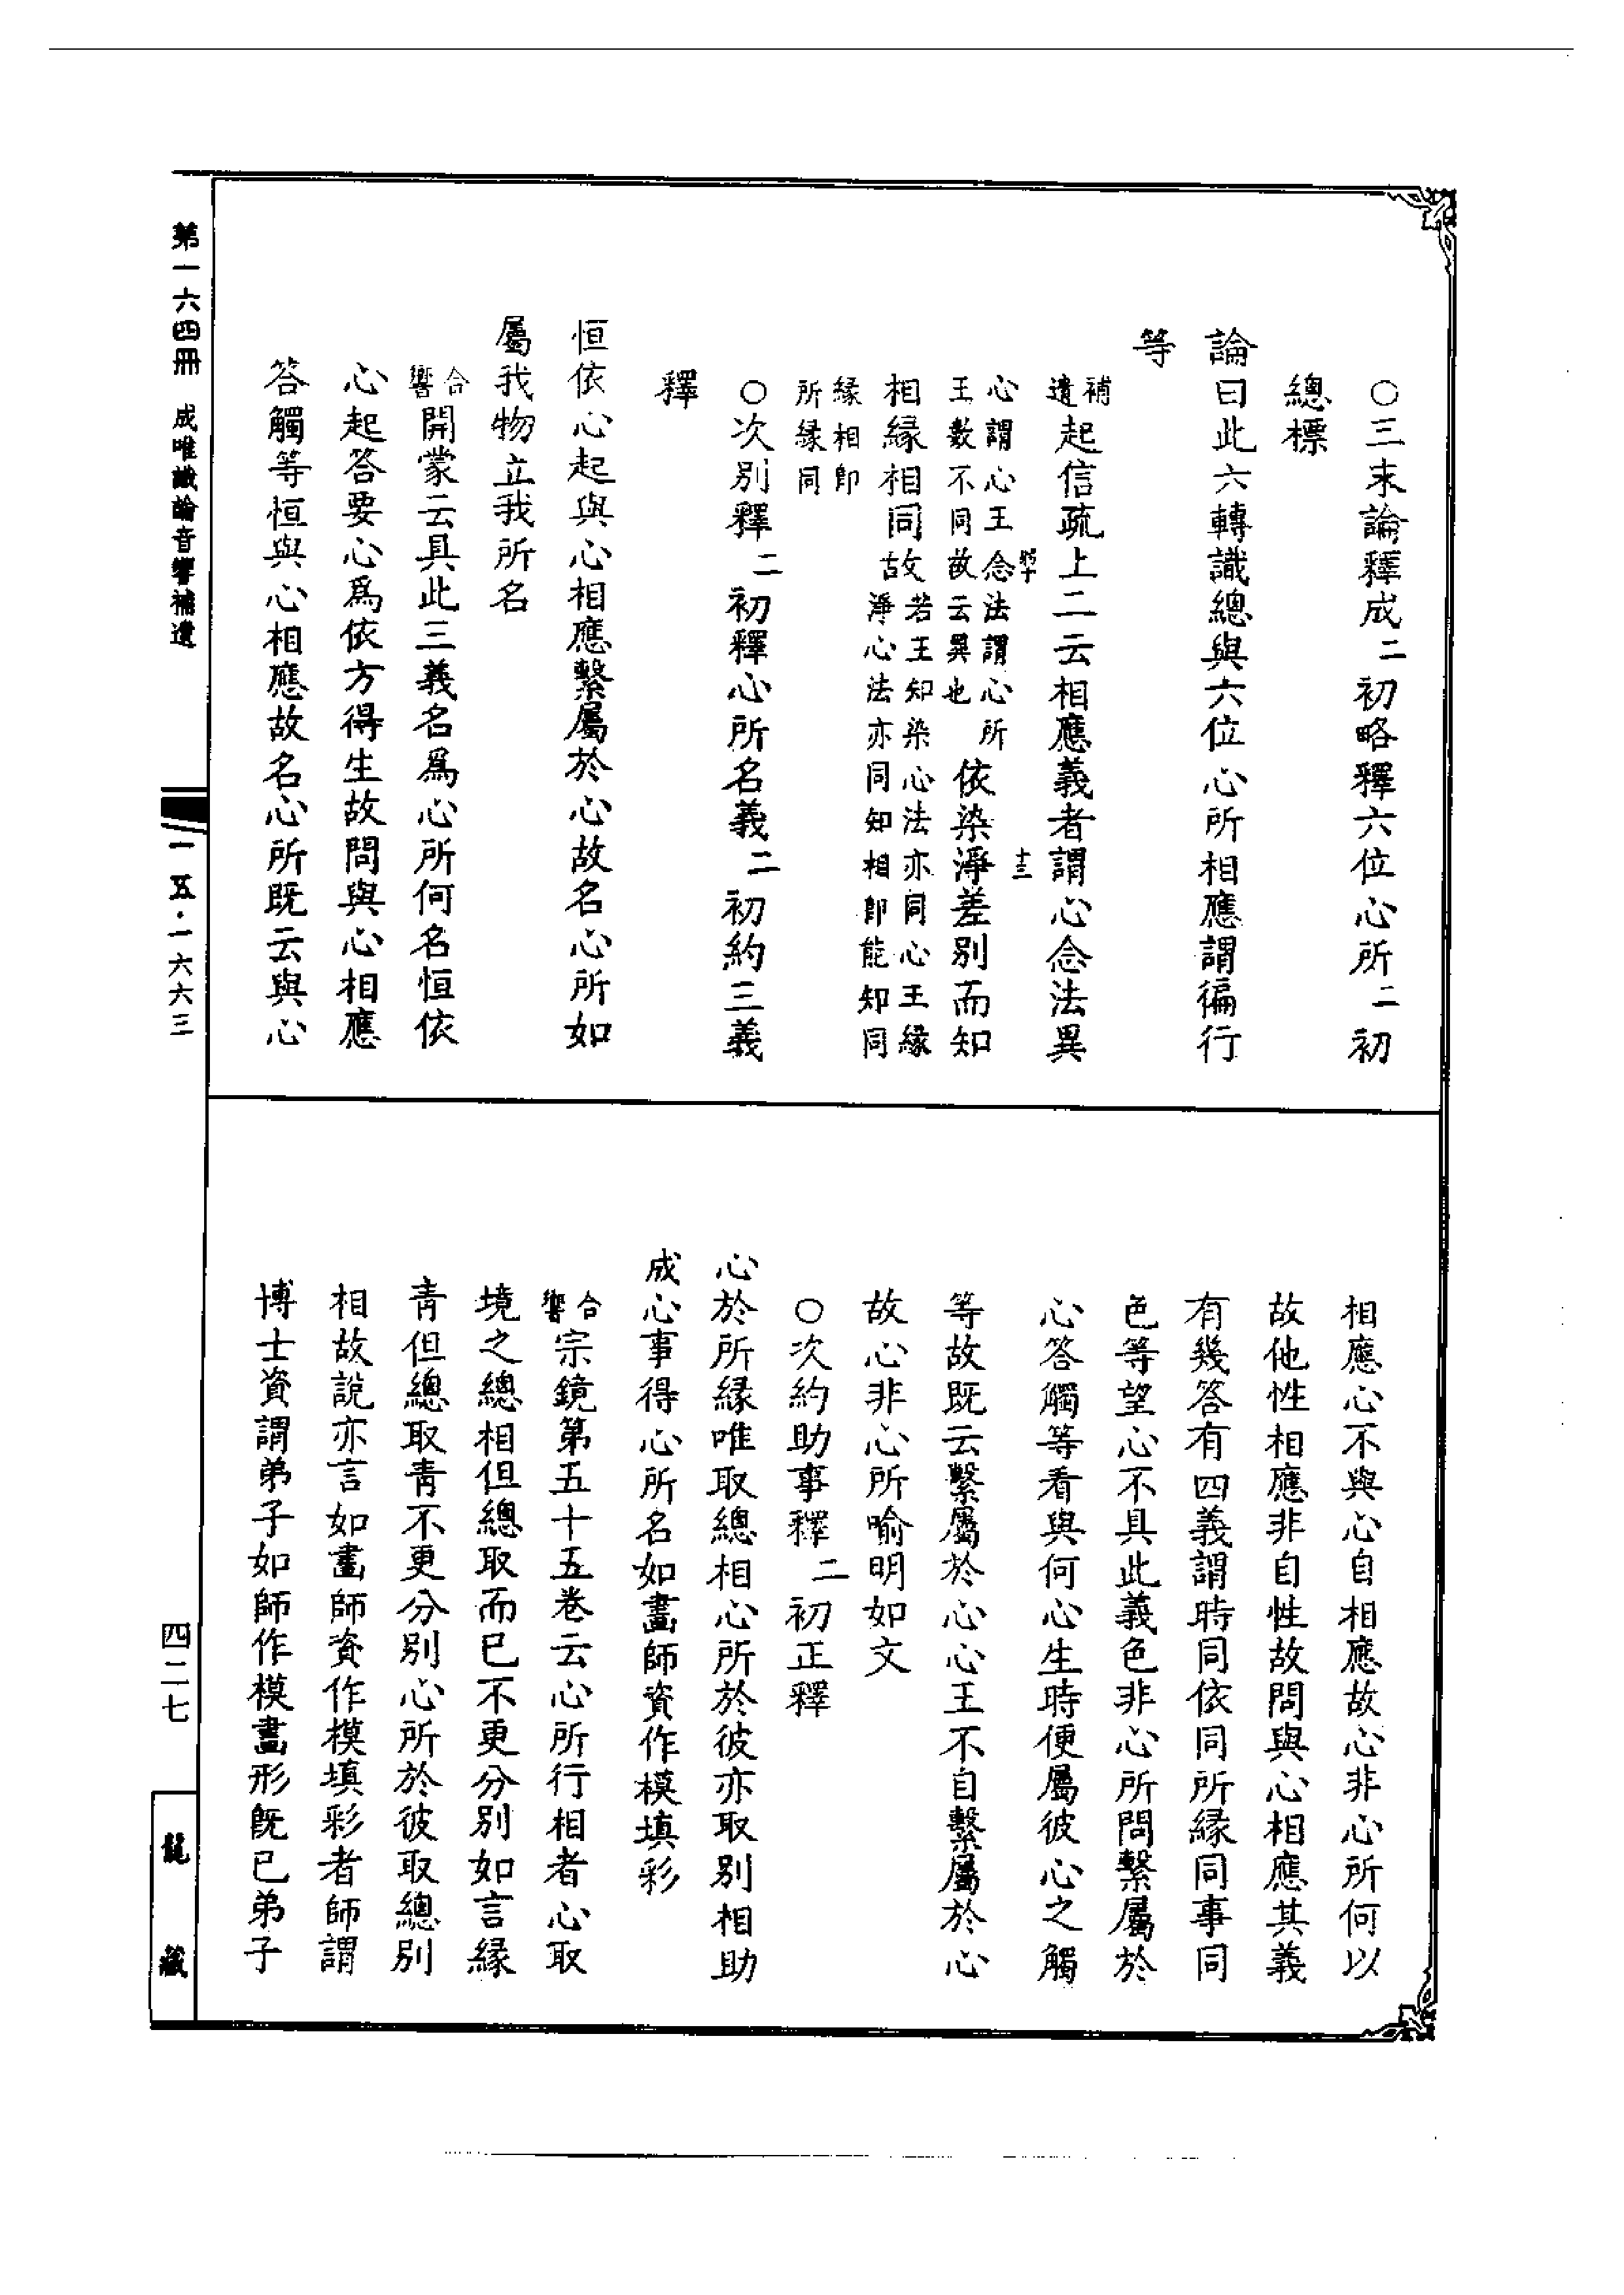 ○三末論釋成二初略釋六位心所二初
總標
論曰此六轉識總與六位心所相應謂徧行
等
補遺起信疏上二云相應義者謂心念法異
心謂心王念法謂心所
王數不同故云異也
依染淨差別而知
相緣相同故
若王知染心法亦同心王緣
淨心法亦同知相即能知同
緣相即
所緣同
○次別釋二初釋心所名義二初約三義
釋
恒依心起與心相應繫屬於心故名心所如
屬我物立我所名
合響開蒙云具此三義名爲心所何名恒依
心起答要心爲依方得生故問與心相應
答觸等恒與心相應故名心所既云與心
相應心不與心自相應故心非心所何以
故他性相應非自性故問與心相應其義
有幾答有四義謂時同依同所緣同事同
色等望心不具此義色非心所問繫屬於
心答觸等看與何心生時便屬彼心之觸
等故既云繫屬於心心王不自繫屬於心
故心非心所喻明如文
○次約助事釋二初正釋
心於所緣唯取總相心所於彼亦取別相助
成心事得心所名如畫師資作模填彩
合響宗鏡第五十五卷云心所行相者心取
境之總相但總取而已不更分別如言緣
青但總取青不更分別心所於彼取總別
相故說亦言如畫師資作模填彩者師謂
博士資謂弟子如師作模畫形旣已弟子
第一六四冊 成唯識論音響補遺
一五·一六六三
四二七
龍藏